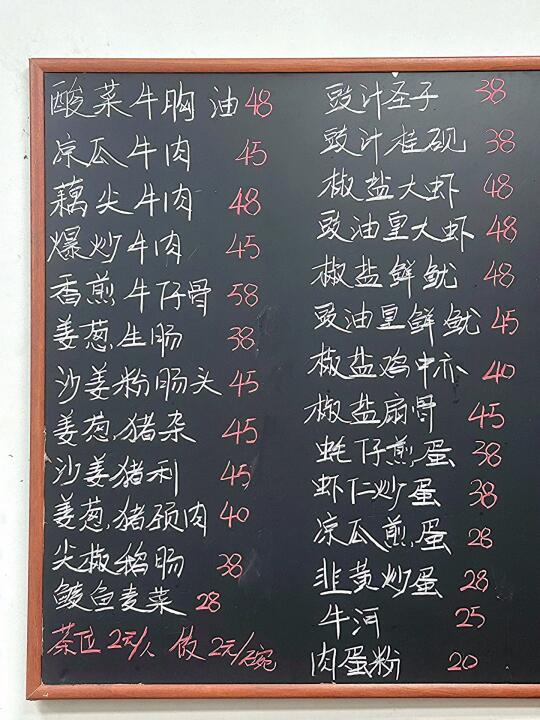 酸菜牛胸油 48
凉瓜牛肉 45
藕尖牛肉 48
爆炒牛肉 45
香煎牛仔骨 58
姜葱生肠 38
沙姜粉肠头 45
姜葱猪杂 45
沙姜猪利 45
姜葱猪颈肉 40
尖椒鹅肠 38
鲮鱼麦菜 28
茶位2元/人 饭2元/碗
豉汁圣子 38
豉汁桂砚 38
椒盐大虾 48
豉油皇大虾 48
椒盐鲜鱿 48
豉油皇鲜鱿 45
椒盐鸡中亦 40
椒盐扇骨 45
蚝仔煎蛋 38
虾仁炒蛋 38
凉瓜煎蛋 28
韭黄炒蛋 28
牛河 25
肉蛋粉 20